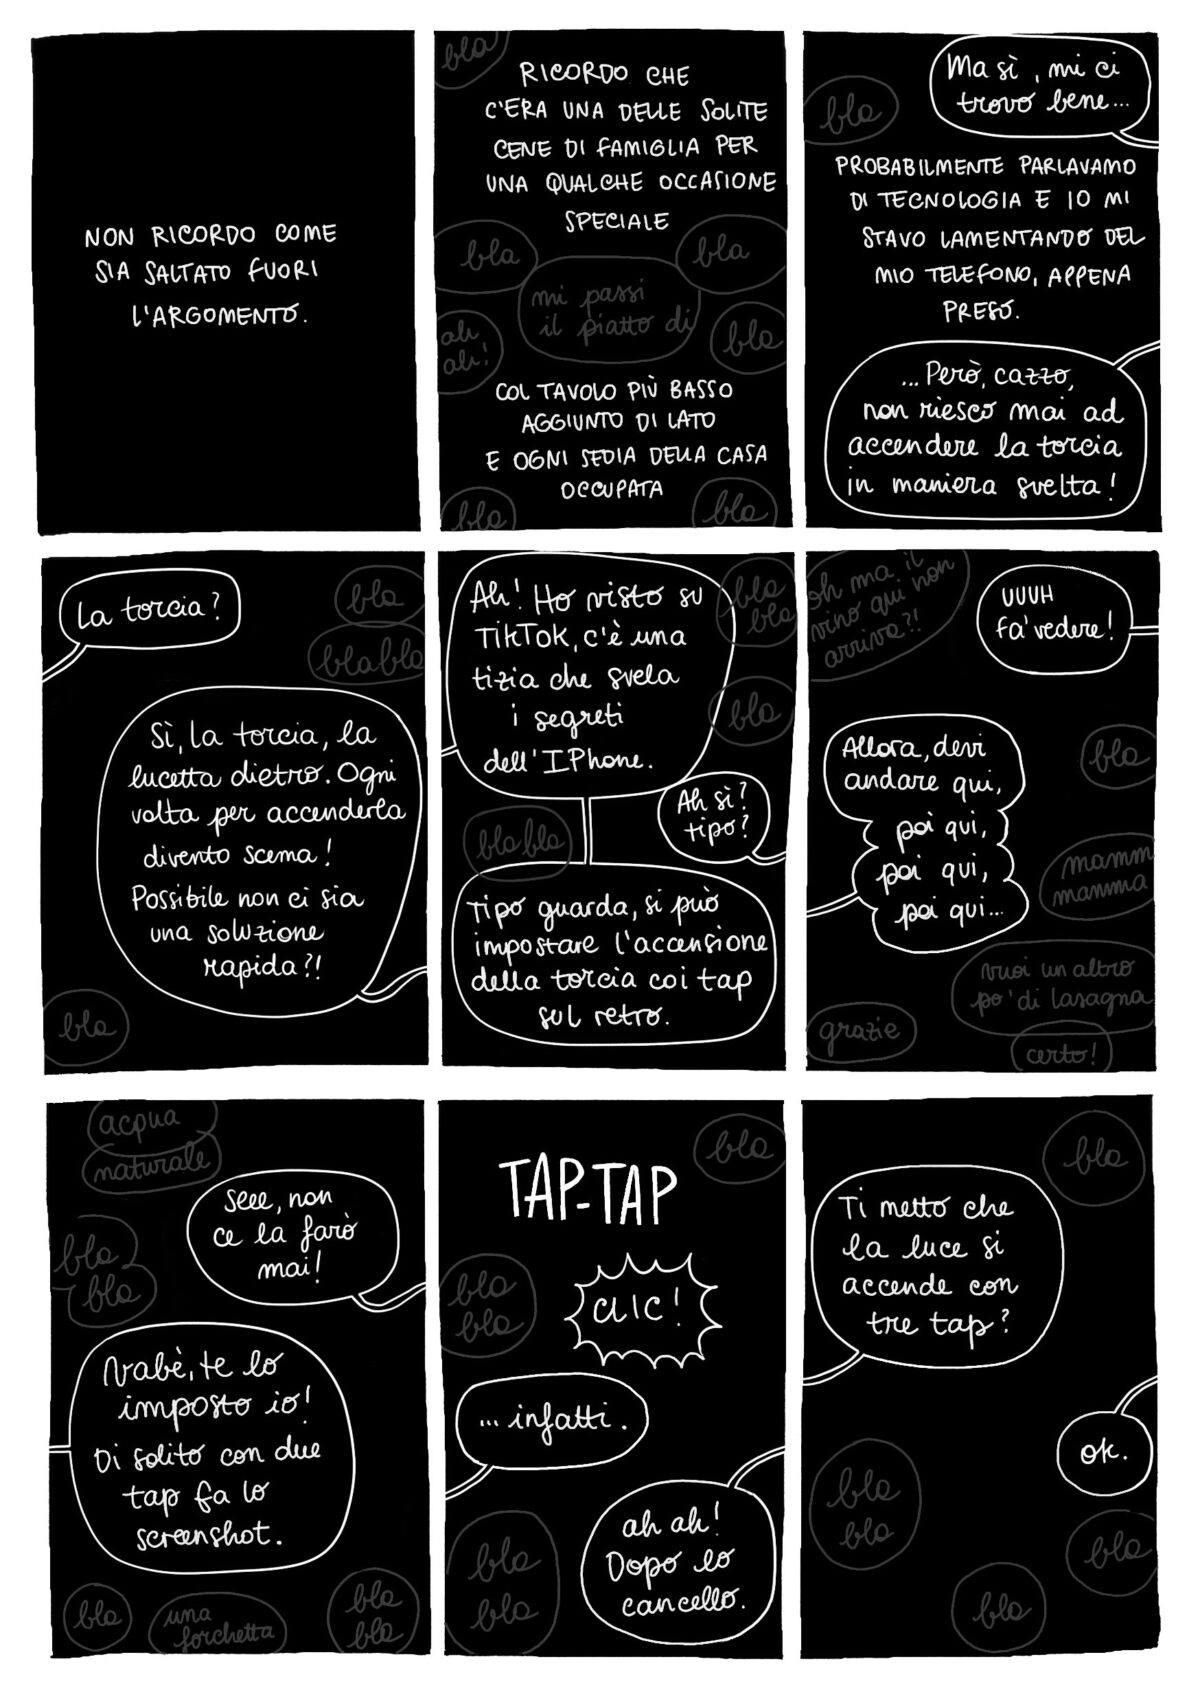 NON RICORDO COME
SIA SALTATO FUORI
L'ARGOMENTO.
bla
RICORDO CHE
C'ERA UNA DELLE SOLITE
CENE DI FAMIGLIA PER
UNA QUALCHE OCCASIONE
SPECIALE
bla
bla
mi passi
il piatto di
ah
ah!
bla
COL TAVOLO PIÙ BASSO
AGGIUNTO DI LATO
E OGNI SEDIA DELLA CASA
OCCUPATA
bla
bla
Ma sì, mi ci
trovo bene...
bla
PROBABILMENTE PARLAVAMO
DI TECNOLOGIA E IO MI
STAVO LAMENTANDO DEL
MIO TELEFONO, APPENA
PRESO.
...Però, cazzo,
non riesco mai ad
accendere la torcia
in maniera svelta!
La torcia?
bla
blabla
Sì, la torcia, la
lucetta dietro. Ogni
volta per accenderla
divento scema!
Possibile non ci sia
una soluzione
rapida?!
bla
Ah! Ho visto su
TikTok, c'è una
tizia che svela
i segreti
dell'IPhone.
bla
bla
bla
Ah sì?
tipo?
blabla
Tipo guarda, si può
impostare l'accensione
della torcia coi tap
sul retro.
oh ma il
vino qui non
arriva?!
UUUH
fa' vedere!
Allora, devi
andare qui,
poi qui,
poi qui,
poi qui...
bla
mamm
mamma
vuoi un altro
po' di lasagna
certo!
grazie
acqua
naturale
Seee, non
ce la farò
mai!
bla
bla
Vabè, te lo
imposto io!
Di solito con due
tap fa lo
screenshot.
bla
una
forchetta
bla
bla
bla
TAP-TAP
CLIC!
bla
bla
... infatti.
ah ah!
Dopo lo
cancello.
bla
bla
bla
Ti metto che
la luce si
accende con
tre tap?
ok.
bla
bla
bla
bla